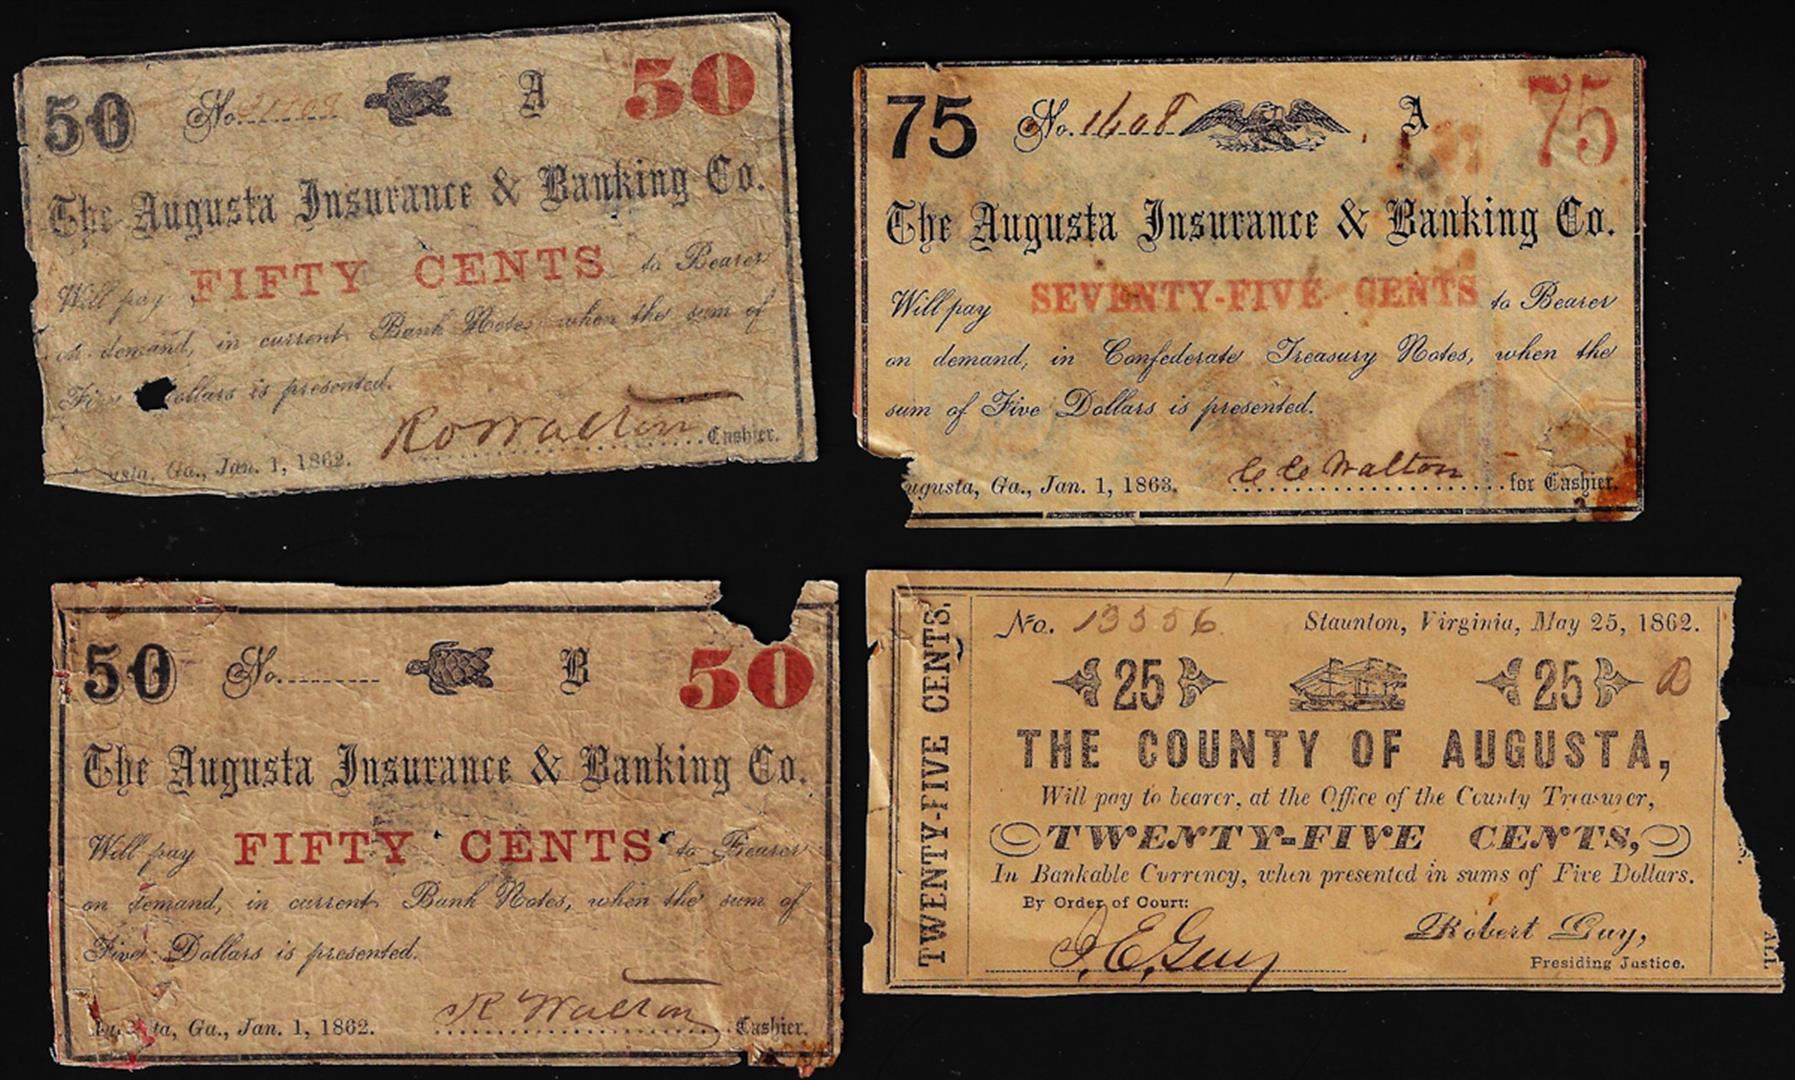 50 No. A 50
The Augusta Insurance & Banking Co.
Will pay FIFTY CENTS to Bearer
on demand, in current Bank Notes, when the sum of
Five Dollars is presented.
Walton Cashier.
usta, Ga., Jan. 1, 1862.
75 No. 1608 A 75
The Augusta Insurance & Banking Co.
Will pay SEVENTY-FIVE CENTS to Bearer
on demand, in Confederate Treasury Notes, when the
sum of Five Dollars is presented.
ugusta, Ga., Jan. 1, 1863. C C Walton for Cashier.
50 No. B 50
The Augusta Insurance & Banking Co.
Will pay FIFTY CENTS to Bearer
on demand, in current Bank Notes, when the sum of
Five Dollars is presented.
ta, Ga., Jan. 1, 1862. R Walton Cashier.
TWENTY-FIVE CENTS.
No. 13556 Staunton, Virginia, May 25, 1862.
25 25 D
THE COUNTY OF AUGUSTA,
Will pay to bearer, at the Office of the County Treasurer,
TWENTY-FIVE CENTS,
In Bankable Currency, when presented in sums of Five Dollars.
By Order of Court:
J. E. Guy Robert Guy,
Presiding Justice.